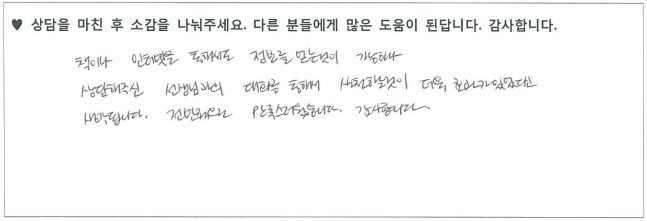 ♥ 상담을 마친 후 소감을 나눠주세요. 다른 분들에게 많은 도움이 된답니다. 감사합니다.
책이나 인터넷을 통해서도 정보를 얻는것이 가능하나
상담해주신 선생님과의 대화를 통해서 실천하는것이 더욱 효과가있었다고
생각됩니다. 전반적으로 만족스러웠습니다. 감사합니다.